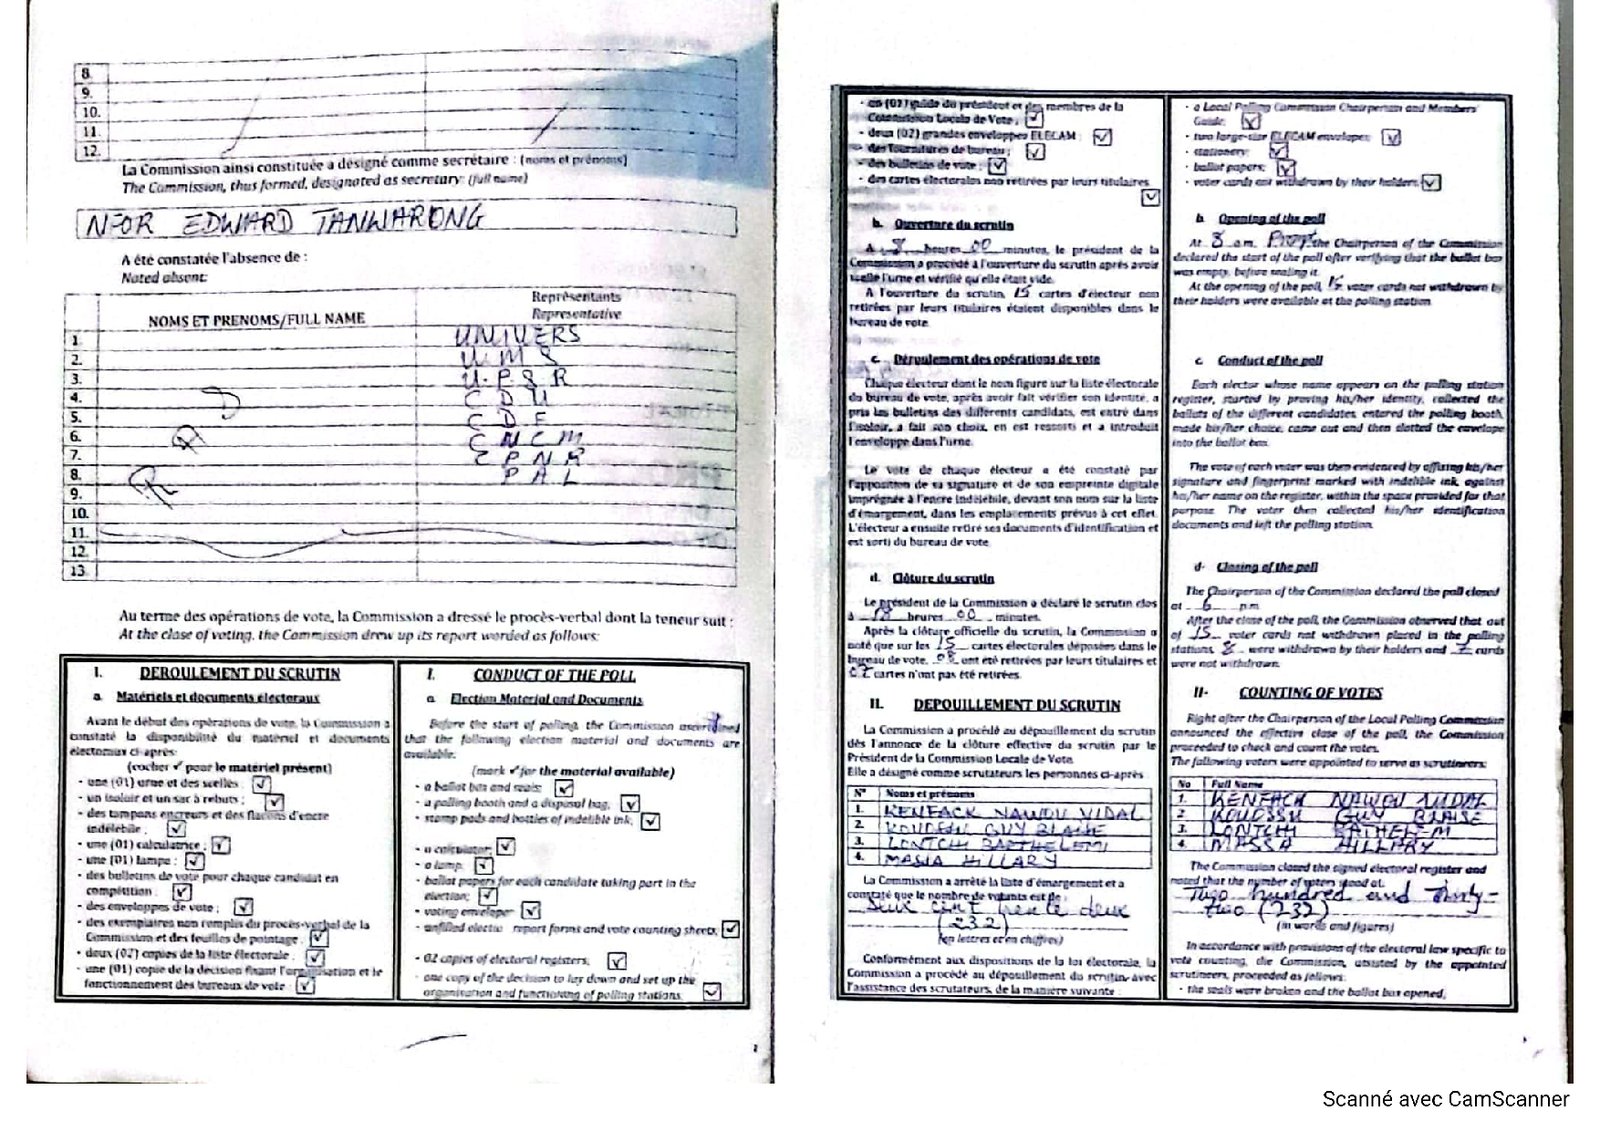 8.
9.
10.
11.
12.
La Commission ainsi constituée a désigné comme secrétaire : (noms et prénoms)
The Commission, thus formed, designated as secretary: (full name)
NFOR EDWARD TANWARONG
A été constatée l'absence de :
Noted absent:
NOMS ET PRENOMS/FULL NAME
Représentants
Representative
1. UNIVERS
2. U M S
3. U.P S R
4. C D U
5. C D F
6. C N C M
7. C P N R
8. P A L
9.
10.
11.
12.
13.
Au terme des opérations de vote, la Commission a dressé le procès-verbal dont la teneur suit :
At the close of voting, the Commission drew up its report worded as follows:
I. DEROULEMENT DU SCRUTIN
a. Matériels et documents électoraux
Avant le début des opérations de vote, la Commission a
constaté la disponibilité du matériel et documents
électoraux ci-après:
(cocher ✓ pour le matériel présent)
- une (01) urne et des scellés ; ✓
- un isoloir et un sac à rebuts ; ✓
- des tampons encreurs et des flacons d'encre
indélébile ; ✓
- une (01) calculatrice ; ✓
- une (01) lampe : ✓
- des bulletins de vote pour chaque candidat en
compétition : ✓
- des enveloppes de vote ; ✓
- des exemplaires non remplis du procès-verbal de la
Commission et des feuilles de pointage ; ✓
- deux (02) copies de la liste électorale ; ✓
- une (01) copie de la décision fixant l'organisation et le
fonctionnement des bureaux de vote : ✓
I. CONDUCT OF THE POLL
a. Election Material and Documents
Before the start of polling, the Commission ascertained
that the following election material and documents are
available.
(mark ✓ for the material available)
- a ballot box and seals; ✓
- a polling booth and a disposal bag, ✓
- stamp pads and bottles of indelible ink; ✓
- a calculator; ✓
- a lamp. ✓
- ballot papers for each candidate taking part in the
election; ✓
- voting envelope; ✓
- unfilled electio report forms and vote counting sheets, ✓
- 02 copies of electoral registers; ✓
- one copy of the decision to lay down and set up the
organisation and functioning of polling stations. ✓
- un (02) guide du président et des membres de la
Commission Locale de Vote ; ✓
- deux (02) grandes enveloppes ELECAM ; ✓
- des fournitures de bureau ; ✓
- des bulletins de vote ; ✓
- des cartes électorales non retirées par leurs titulaires
✓
b. Ouverture du scrutin
A 8 heures 00 minutes, le président de la
Commission a procédé à l'ouverture du scrutin après avoir
scellé l'urne et vérifié qu'elle était vide.
A l'ouverture du scrutin, 15 cartes d'électeur non
retirées par leurs titulaires étaient disponibles dans le
bureau de vote
c. Déroulement des opérations de vote
Chaque électeur dont le nom figure sur la liste électorale
du bureau de vote, après avoir fait vérifier son identité, a
pris les bulletins des différents candidats, est entré dans
l'isoloir, a fait son choix, en est ressorti et a introduit
l'enveloppe dans l'urne.
Le vote de chaque électeur a été constaté par
l'apposition de sa signature et de son empreinte digitale
imprégnée à l'encre indélébile, devant son nom sur la liste
d'émargement, dans les emplacements prévus à cet effet.
L'électeur a ensuite retiré ses documents d'identification et
est sorti du bureau de vote
d. Clôture du scrutin
Le président de la Commission a déclaré le scrutin clos
à 18 heures 00 minutes.
Après la clôture officielle du scrutin, la Commission a
noté que sur les 15 cartes électorales déposées dans le
bureau de vote, 08 ont été retirées par leurs titulaires et
07 cartes n'ont pas été retirées.
II. DEPOUILLEMENT DU SCRUTIN
La Commission a procédé au dépouillement du scrutin
dès l'annonce de la clôture effective du scrutin par le
Président de la Commission Locale de Vote
Elle a désigné comme scrutateurs les personnes ci-après
N° Noms et prénoms
1. KENFACK NAWOU VIDAL
2. KOUDESSU GUY BLAISE
3. LONTCHI BARTHELEMI
4. MASSA HILLARY
La Commission a arrêté la liste d'émargement et a
constaté que le nombre de votants est de :
Deux cent trente deux
(232)
(en lettres et en chiffres)
Conformément aux dispositions de la loi électorale, la
Commission a procédé au dépouillement du scrutin avec
l'assistance des scrutateurs, de la manière suivante :
- a Local Polling Commission Chairperson and Members'
Guide; ✓
- two large-size ELECAM envelopes; ✓
- stationery; ✓
- ballot papers; ✓
- voter cards not withdrawn by their holders. ✓
b. Opening of the poll
At 8 a.m. Prompt the Chairperson of the Commission
declared the start of the poll after verifying that the ballot box
was empty, before sealing it.
At the opening of the poll, 15 voter cards not withdrawn by
their holders were available at the polling station.
c. Conduct of the poll
Each elector whose name appears on the polling station
register, started by proving his/her identity, collected the
ballots of the different candidates, entered the polling booth,
made his/her choice, came out and then slotted the envelope
into the ballot box.
The vote of each voter was then evidenced by affixing his/her
signature and fingerprint marked with indelible ink, against
his/her name on the register, within the space provided for that
purpose. The voter then collected his/her identification
documents and left the polling station.
d- Closing of the poll
The Chairperson of the Commission declared the poll closed
at 6 p.m
After the close of the poll, the Commission observed that out
of 15 voter cards not withdrawn placed in the polling
stations, 8 were withdrawn by their holders and 7 cards
were not withdrawn.
II- COUNTING OF VOTES
Right after the Chairperson of the Local Polling Commission
announced the effective close of the poll, the Commission
proceeded to check and count the votes.
The following voters were appointed to serve as scrutineers:
No Full Name
1. KENFACK NAWOU VIDAL
2. GUY BLAISE
3. LONTCHI BATHEL-M
4. MASSA HILLARY
The Commission closed the signed electoral register and
noted that the number of voters stood at.
Two hundred and thirty-
two (232)
(in words and figures)
In accordance with provisions of the electoral law specific to
vote counting, the Commission, assisted by the appointed
scrutineers, proceeded as follows:
- the seals were broken and the ballot box opened,
Scanné avec CamScanner